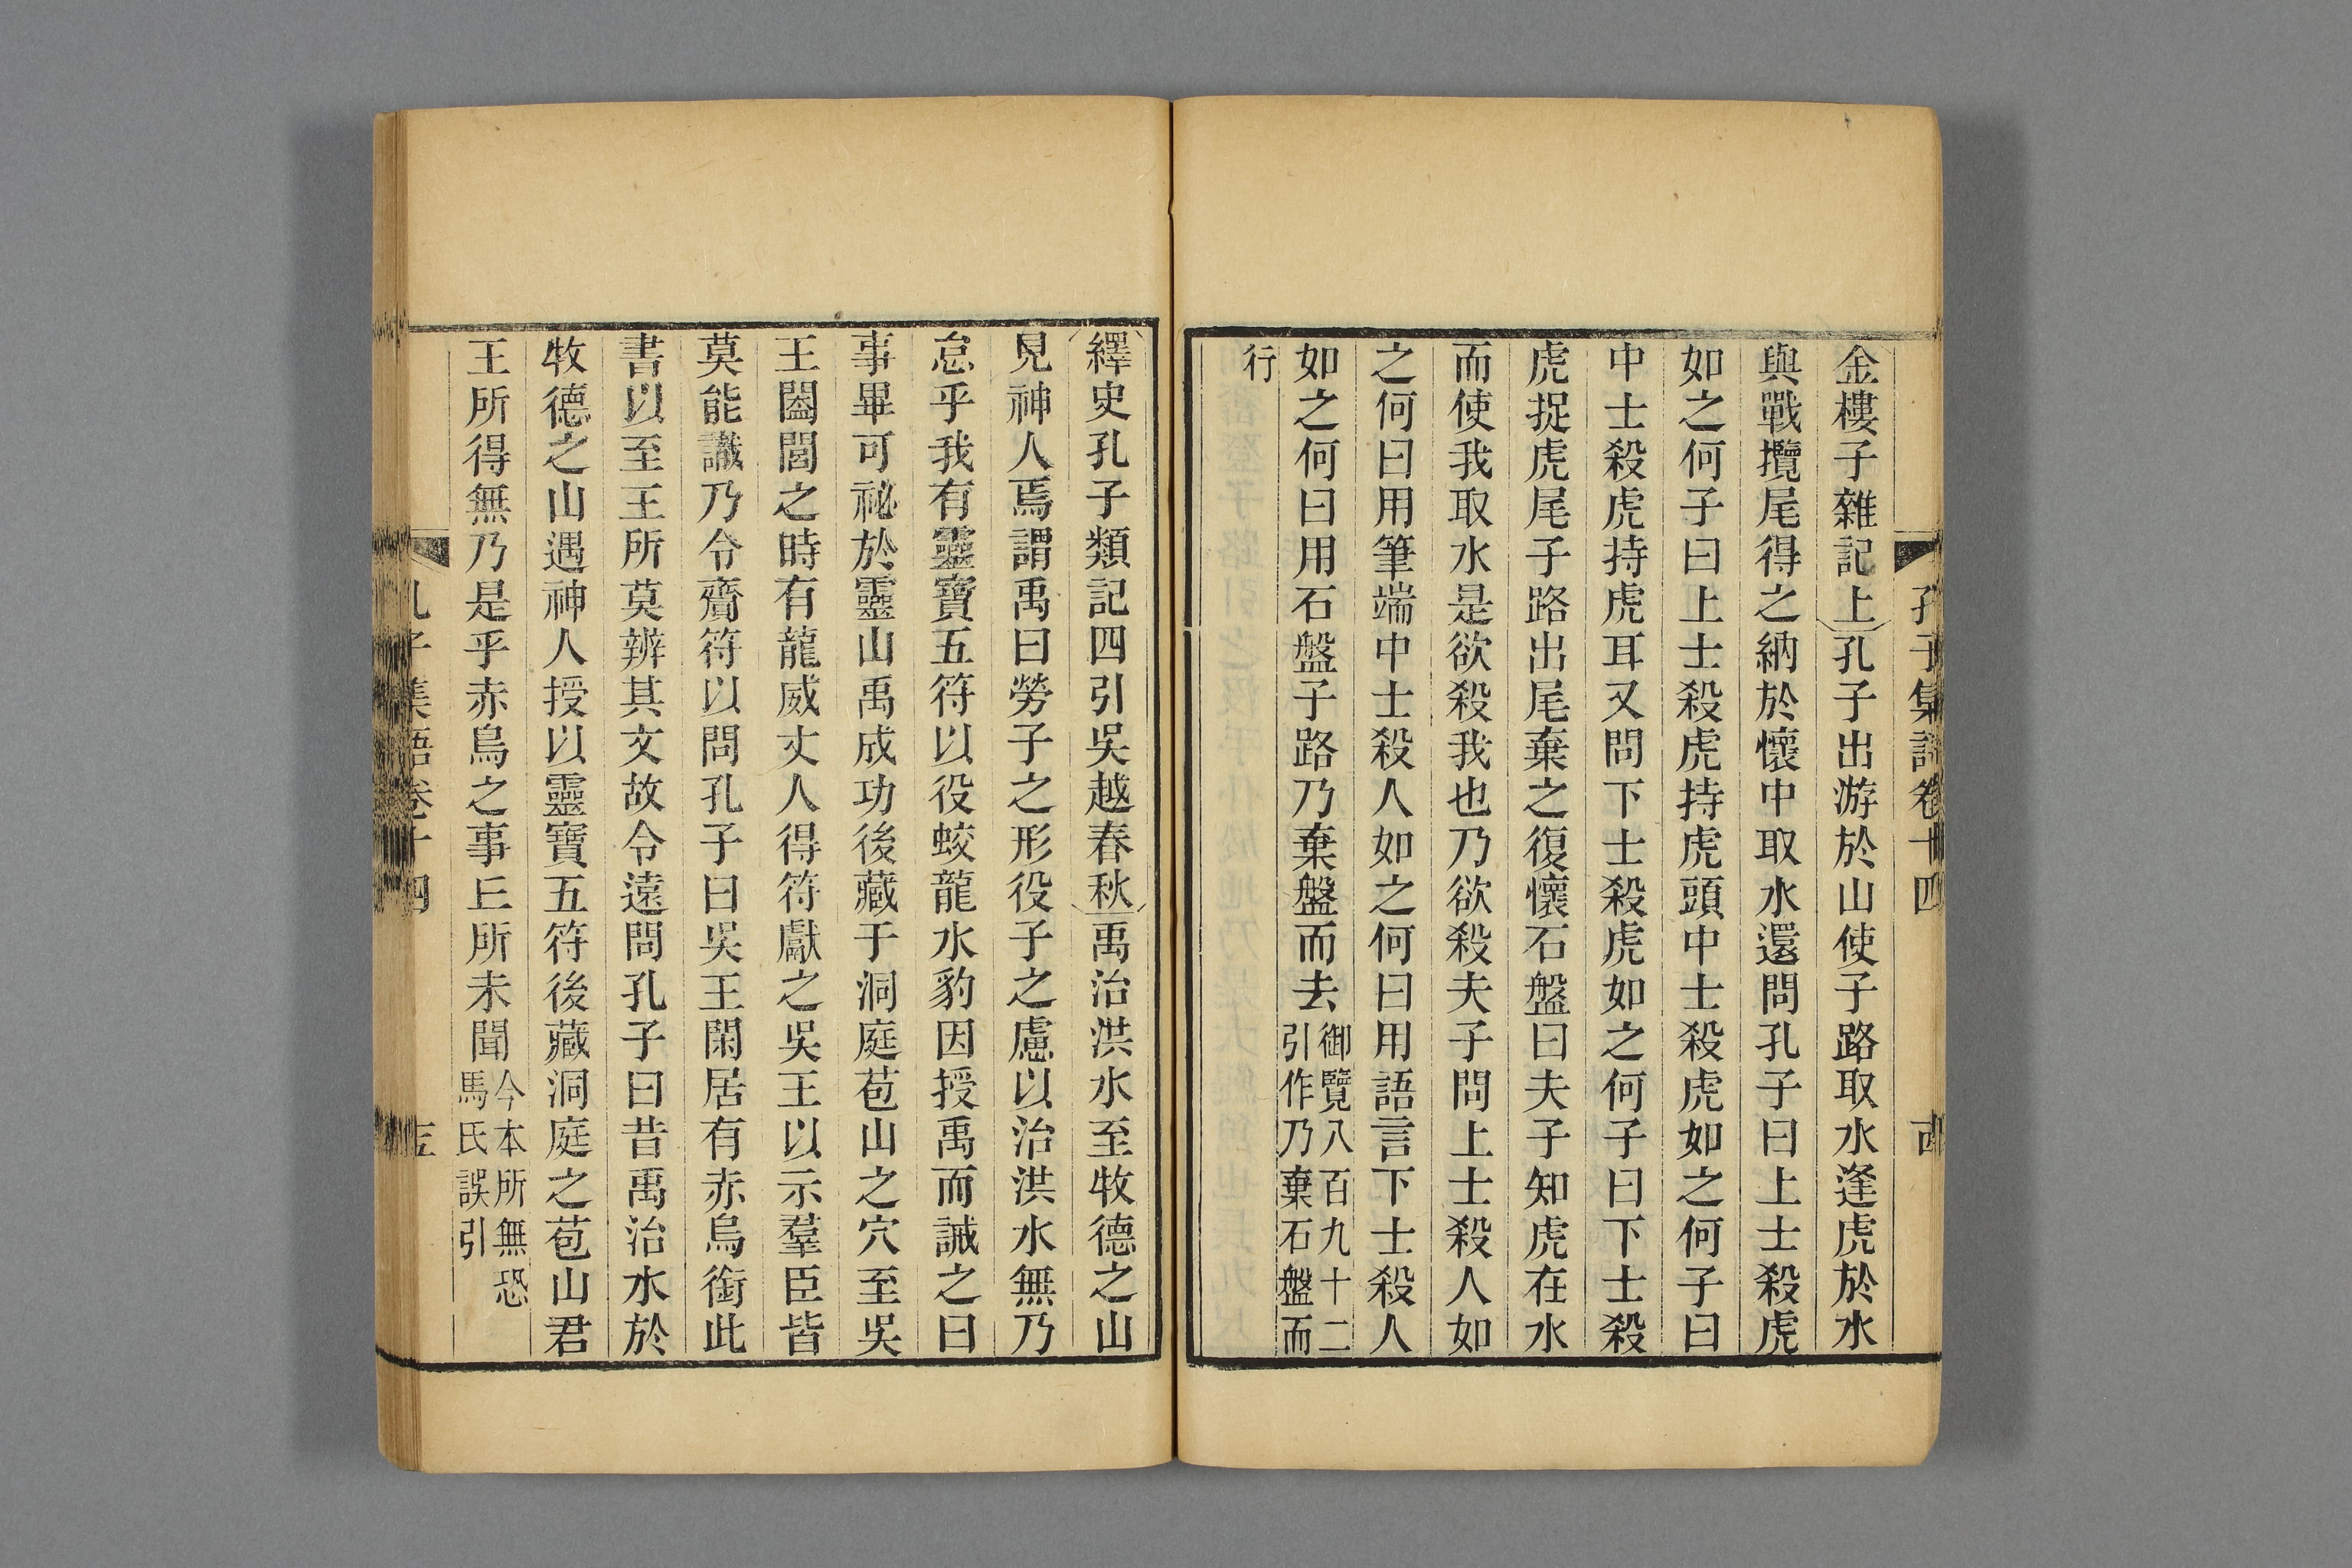 孔子集語卷十四
金樓子雜記上孔子出游於山使子路取水逢虎於水
與戰攬尾得之納於懷中取水還問孔子曰上士殺虎
如之何子曰上士殺虎持虎頭中士殺虎如之何子曰
中士殺虎持虎耳又問下士殺虎如之何子曰下士殺
虎捉虎尾子路出尾棄之復懷石盤曰夫子知虎在水
而使我取水是欲殺我也乃欲殺夫子問上士殺人如
之何曰用筆端中士殺人如之何曰用語言下士殺人
如之何曰用石盤子路乃棄盤而去
御覽八百九十二
引作乃棄石盤而
行
繹史孔子類記四引吳越春秋禹治洪水至牧德之山
見神人焉謂禹曰勞子之形役子之慮以治洪水無乃
怠乎我有靈寶五符以役蛟龍水豹因授禹而誡之曰
事畢可祕於靈山禹成功後藏于洞庭苞山之穴至吳
王闔閭之時有龍威丈人得符獻之吳王以示羣臣皆
莫能識乃令齎符以問孔子曰吳王閑居有赤烏銜此
書以至王所莫辨其文故令遠問孔子曰昔禹治水於
牧德之山遇神人授以靈寶五符後藏洞庭之苞山君
王所得無乃是乎赤烏之事丘所未聞
今本所無恐
馬氏誤引
孔子集語卷十四